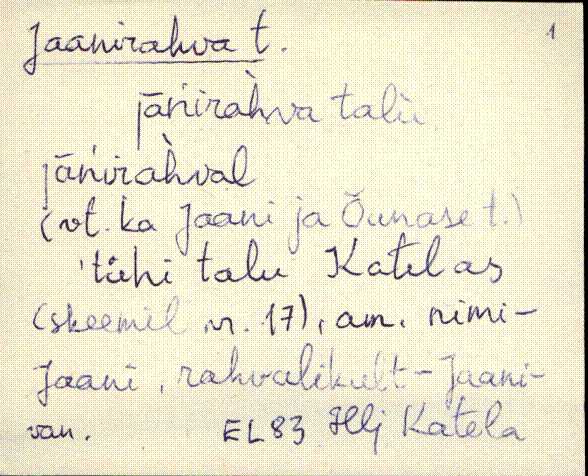 Jaanirahva t. 1
jāńiràhva talu
jāńiràhval
(vt. ka Jaani ja Õunase t.)
'tühi talu Katelas
(skeemil nr. 17), am. nimi-
Jaani, rahvalikult - Jaani-
van. EL83 Hlj Katela